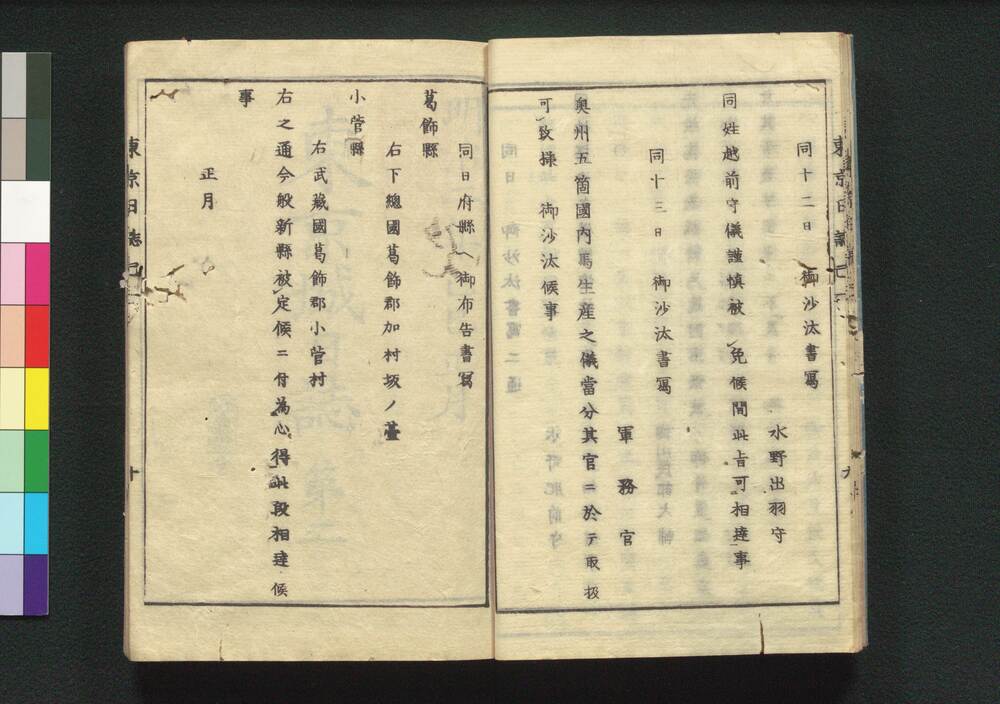 同十二日　御沙汰書寫
水野出羽守
同姓越前守儀謹慎被　免候間此旨可相達事
同十三日　御沙汰書寫
軍務官
奥州五箇國内馬生産之儀當分其官ニ於テ取扱
可致様　御沙汰候事
同日府縣ヘ御布告書寫
葛飾縣
右下總國葛飾郡加村坂ノ臺
小菅縣
右武藏國葛飾郡小菅村
右之通今般新縣被定候ニ付為心得此段相達候
事
正月
東京日誌
十